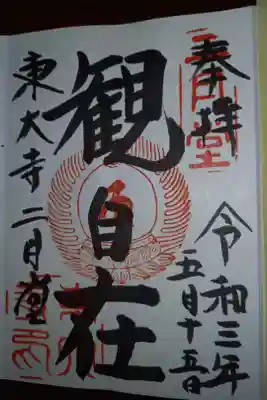 奉拝
令和三年
五月十五日
観自在
東大寺二月堂
二月堂